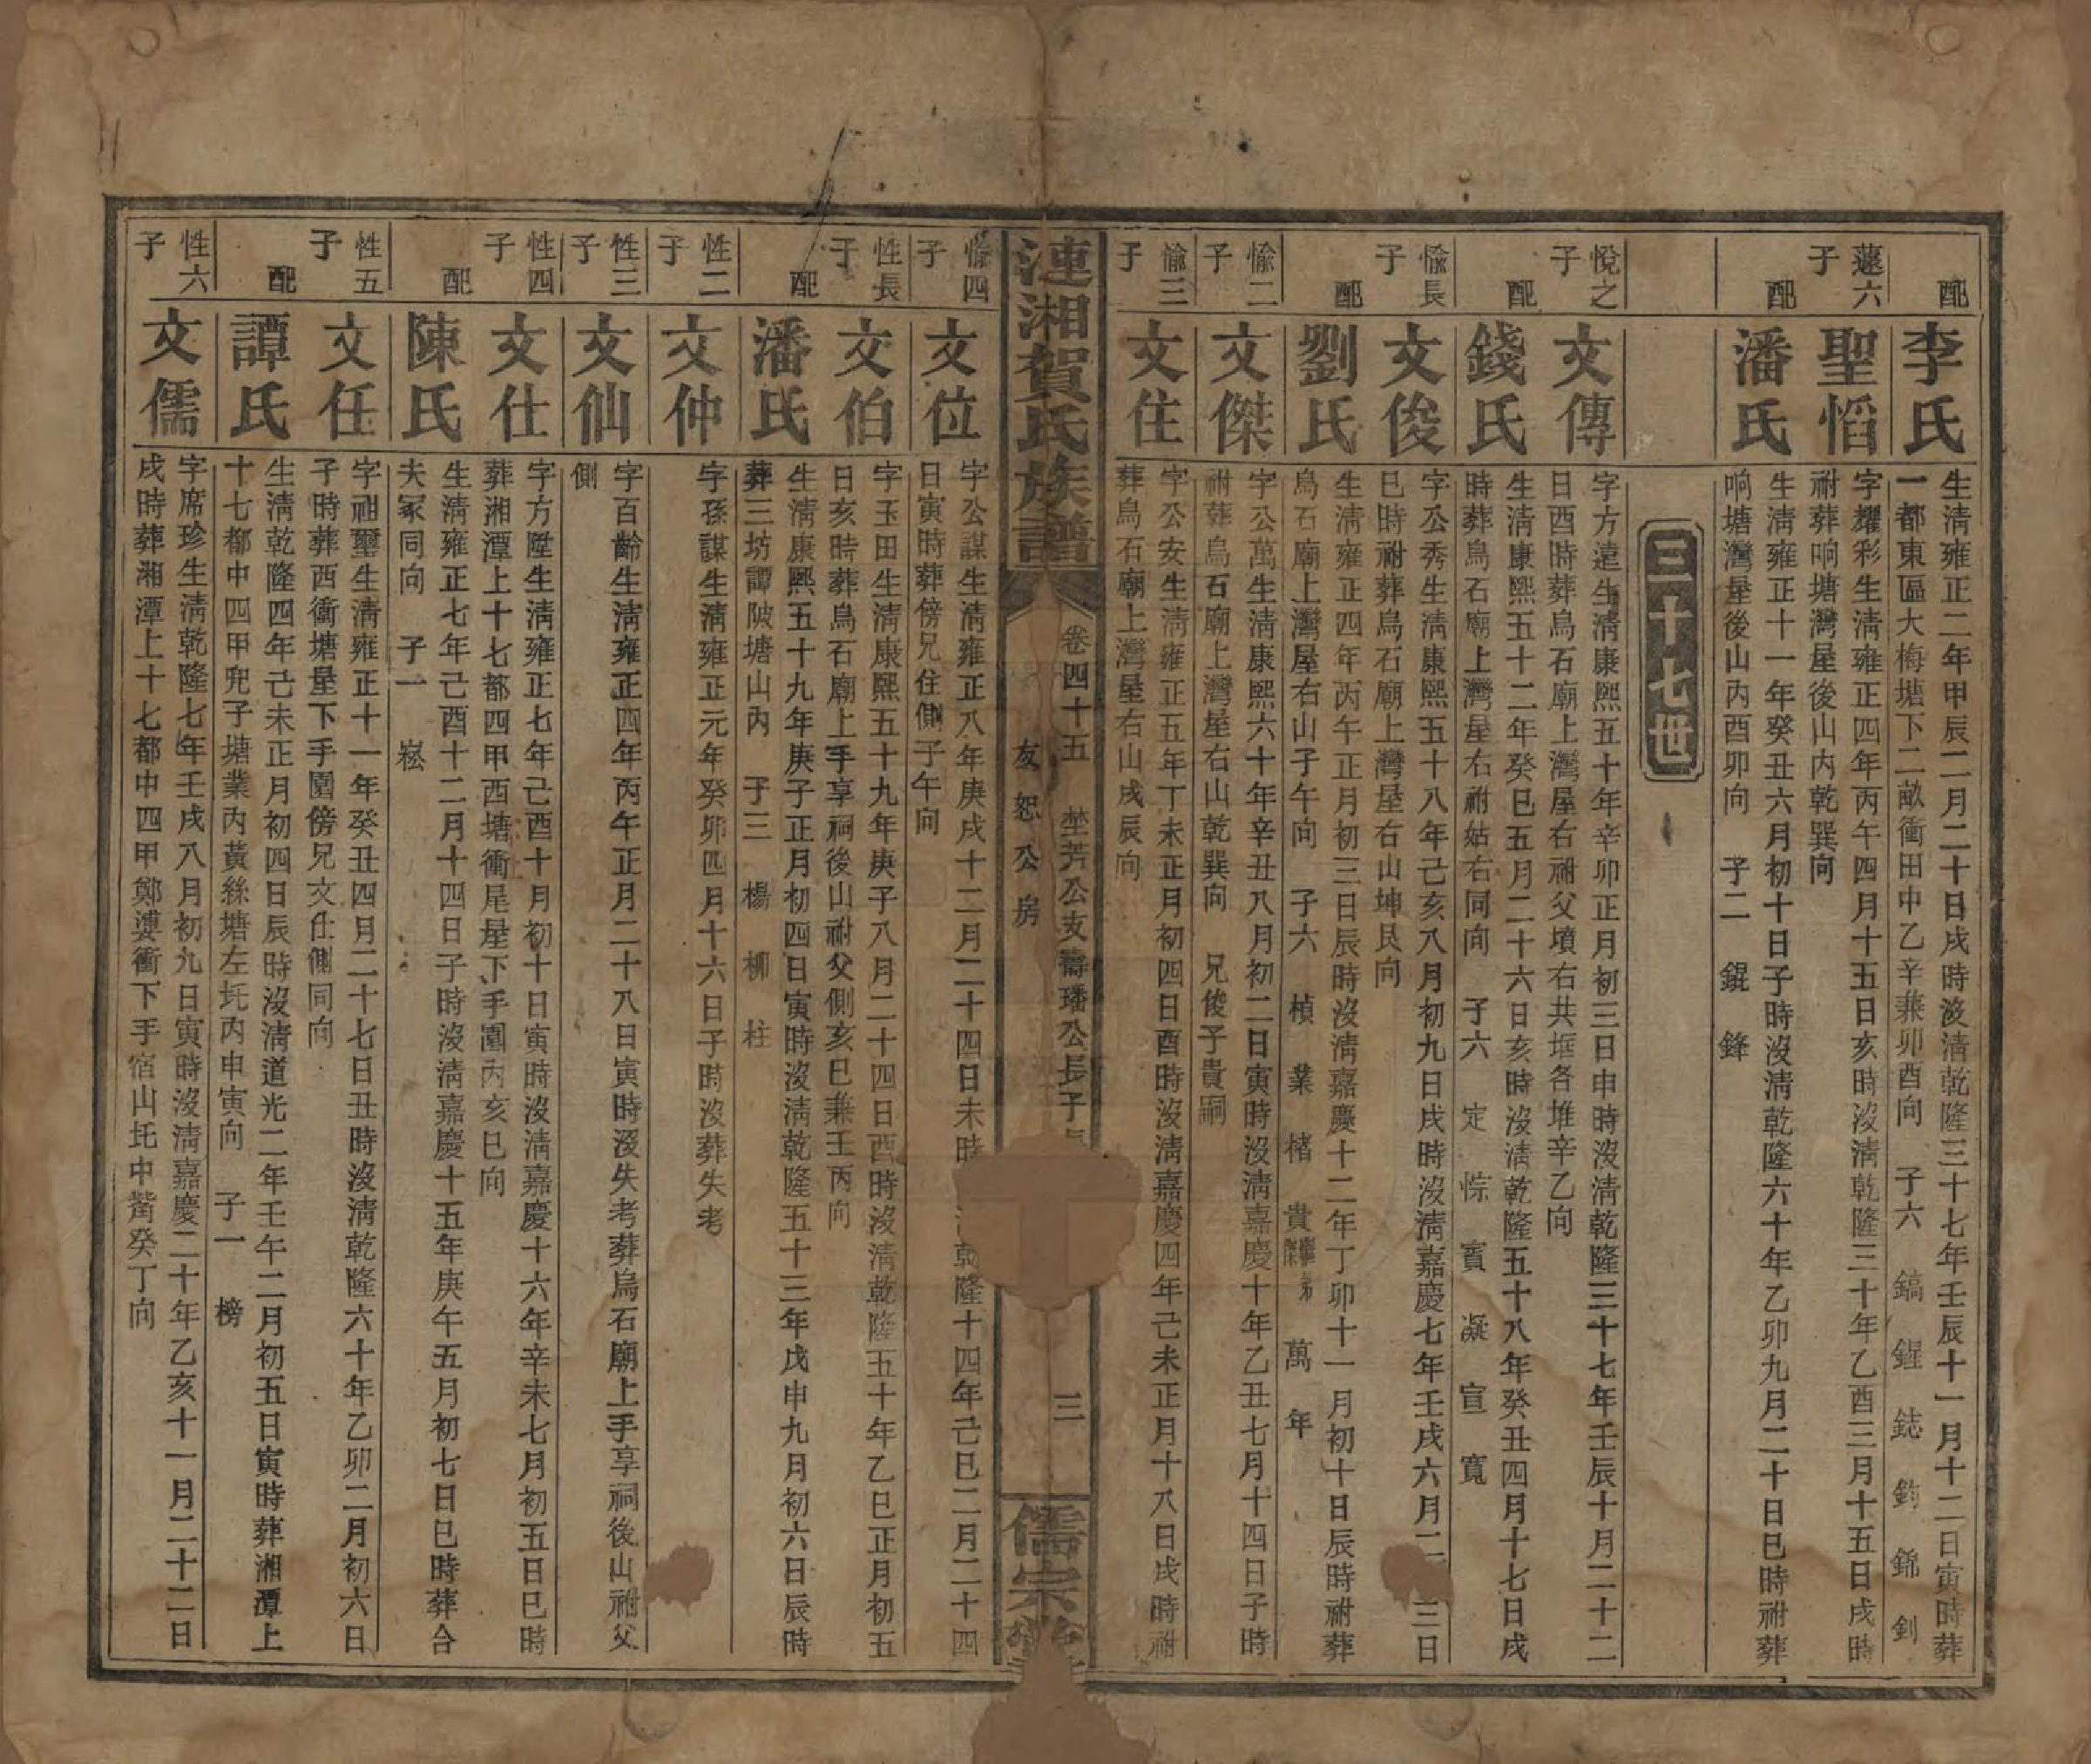 配
李氏
生清雍正二年甲辰二月二十日戌時沒清乾隆三十七年壬辰十一月十二日寅時葬
一都東區大梅塘下二畝衝田中乙辛兼卯酉向 子六 鎬 鋥 鋕 鈞 錦 釗
蘧六子
聖慆
字耀彩生清雍正四年丙午四月十五日亥時沒清乾隆三十年乙酉三月十五日戌時
祔葬响塘灣屋後山內乾巽向
配
潘氏
生清雍正十一年癸丑六月初十日子時沒清乾隆六十年乙卯九月二十日巳時祔葬
响塘灣屋後山內酉卯向 子二 錕 鋒
三十七世
悅之子
文傳
字方遠生清康熙五十年辛卯正月初三日申時沒清乾隆三十七年壬辰十月二十二
日酉時葬烏石廟上灣屋右祔父墳右共堩各堆辛乙向
配
錢氏
生清康熙五十二年癸巳五月二十六日亥時沒清乾隆五十八年癸丑四月十七日戌
時葬烏石廟上灣屋右祔姑右同向 子六 定 悰 賓 凝 宣 寬
愉長子
文俊
字公秀生清康熙五十八年己亥八月初九日戌時沒清嘉慶七年壬戌六月二 三日
巳時祔葬烏石廟上灣屋右山坤艮向
配
劉氏
生清雍正四年丙午正月初三日辰時沒清嘉慶十二年丁卯十一月初十日辰時祔葬
烏石廟上灣屋右山子午向 子六 楨 業 楮 貴繼弟傑 萬 年
愉二子
文傑
字公萬生清康熙六十年辛丑八月初二日寅時沒清嘉慶十年乙丑七月十四日子時
祔葬烏石廟上灣屋右山乾巽向 兄俊子貴嗣
愉三子
文住
字公安生清雍正五年丁未正月初四日酉時沒清嘉慶四年己未正月十八日戌時祔
葬烏石廟上灣屋右山戌辰向
漣湘賀氏族譜
卷四十五 埜芳公支壽璠公長子
友恕公房
三
儒宗堂
愉四子
文位
字公謀生清雍正八年庚戌十二月二十四日未時 乾隆十四年己巳二月二十四
日寅時葬傍兄住側子午向
性長子
文伯
字玉田生清康熙五十九年庚子八月二十四日酉時沒清乾隆五十年乙巳正月初五
日亥時葬烏石廟上手享祠後山祔父側亥巳兼壬丙向
配
潘氏
生清康熙五十九年庚子正月初四日寅時沒清乾隆五十三年戊申九月初六日辰時
葬三坊譚陂塘山內 子三 楊 柳 柱
性二子
文仲
字孫謀生清雍正元年癸卯四月十六日子時沒葬失考
性三子
文仙
字百齡生清雍正四年丙午正月二十八日寅時沒失考葬烏石廟上手享祠後山祔父
側
性四子
文仕
字方陞生清雍正七年己酉十月初十日寅時沒清嘉慶十六年辛未七月初五日巳時
葬湘潭上十七都四甲西塘衝尾屋下手園內亥巳向
配
陳氏
生清雍正七年己酉十二月十四日子時沒清嘉慶十五年庚午五月初七日巳時葬合
夫冢同向 子一 崧
性五子
文任
字祖璽生清雍正十一年癸丑四月二十七日丑時沒清乾隆六十年乙卯二月初六日
子時葬西衝塘屋下手園傍兄文仕側同向
配
譚氏
生清乾隆四年己未正月初四日辰時沒清道光二年壬午二月初五日寅時葬湘潭上
十七都中四甲兜子塘業內黃絲塘左圫內申寅向 子一 榜
性六子
文儒
字席珍生清乾隆七年壬戌八月初九日寅時沒清嘉慶二十年乙亥十一月二十二日
戌時葬湘潭上十七都中四甲鄭婆衝下手宿山圫中觜癸丁向